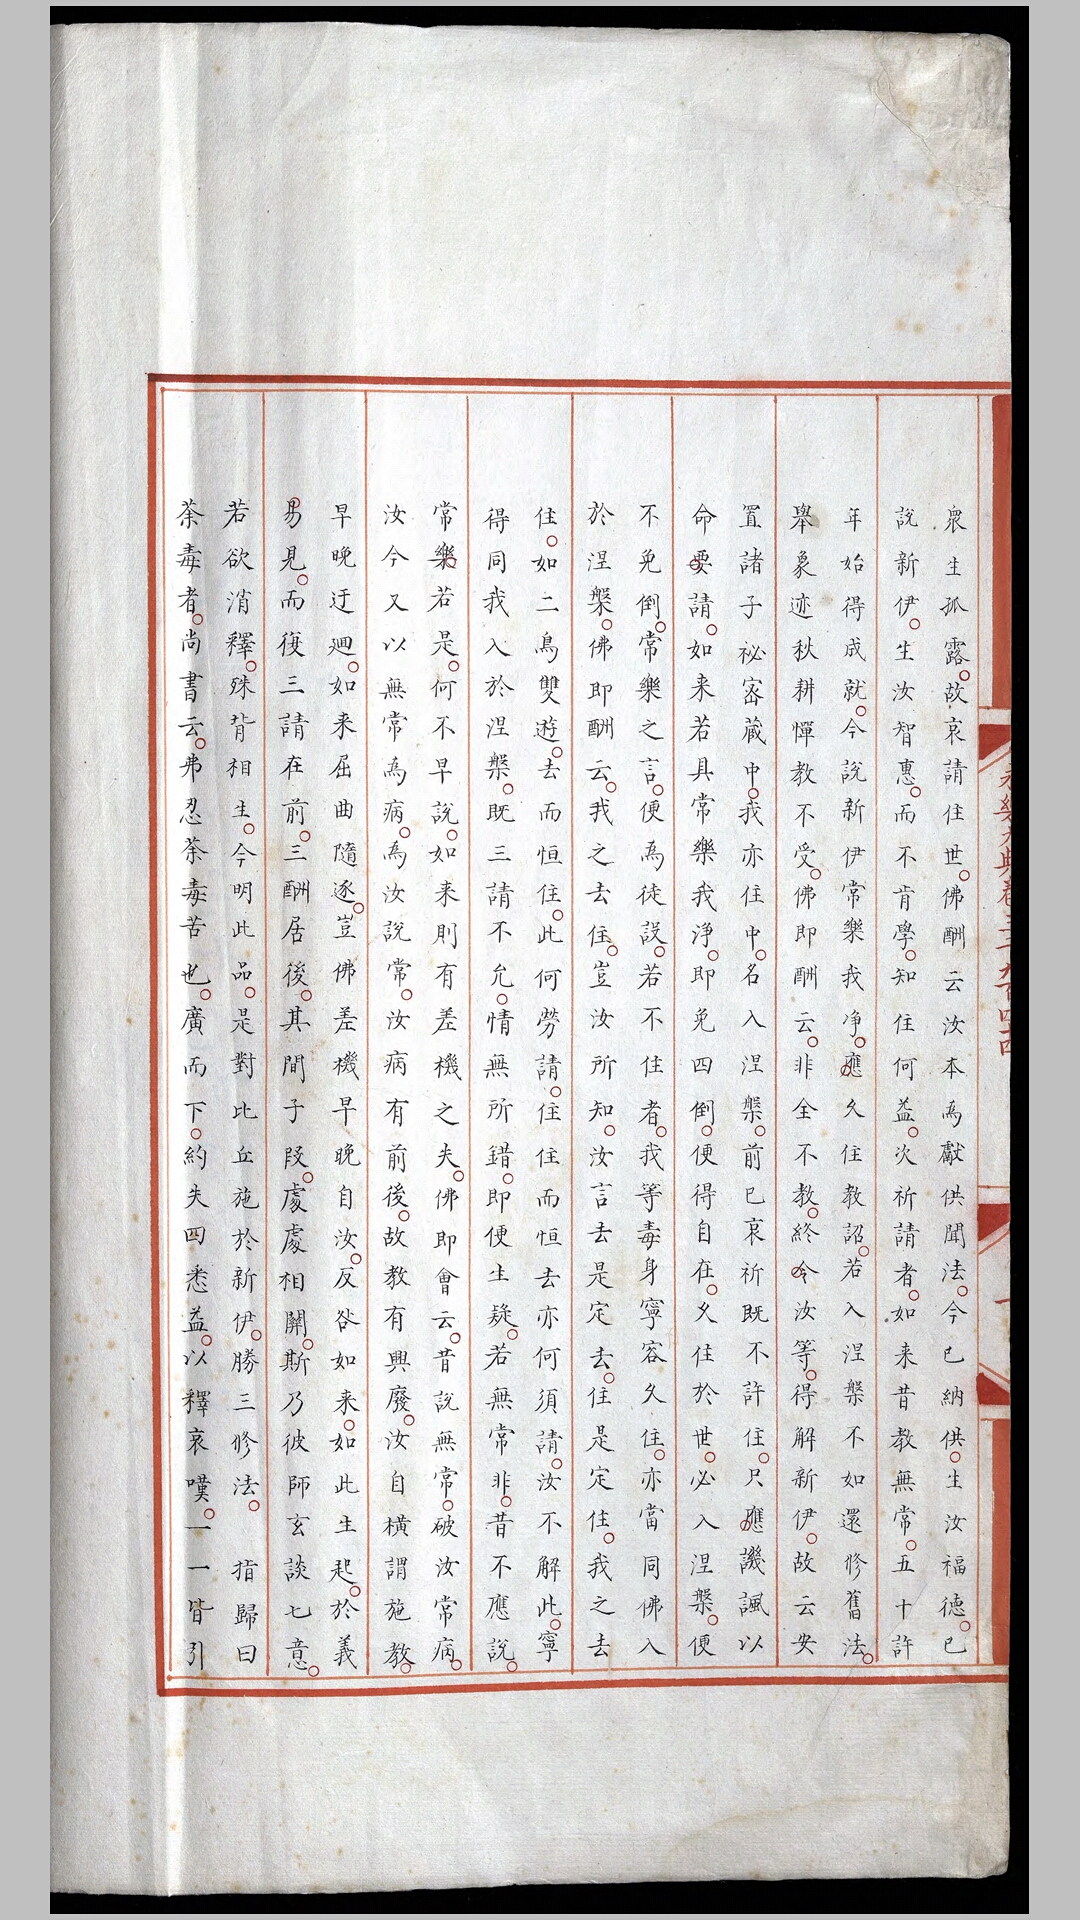 衆生孤露故哀請住世佛酬云汝本為獻供聞法今已納供生汝福德已
說新伊生汝智惠而不肯學知住何益次祈請者如来昔教無常五十許
年始得成就今說新伊常樂我净應久住教詔若入涅槃不如還修舊法
舉象迹秋耕憚教不受佛即酬云非全不教終令汝等得解新伊故云安
置諸子祕宻蔵中我亦住中名入涅槃前已哀祈既不許住只應譏諷以
命要請如来若具常樂我淨即免四倒便得自在久住於世必入涅槃便
不免倒常樂之言便為徒設若不住者我等毒身寧容久住亦當同佛入
於涅槃佛即酬云我之去住豈汝所知汝言去是定去住是定住我之去
住如二鳥雙遊去而恒住此何勞請住住而恒去亦何須請汝不解此寧
得同我入於涅槃既三請不允情無所錯即便生疑若無常非昔不應說
常樂若是何不早說如来則有差機之失佛即會云昔說無常破汝常病
汝今又以無常為病為汝說常汝病有前後故教有興廢汝自橫謂施教
早晚迂迴如来屈曲隨逐豈佛差機早晚自汝反咎如来如此生起於義
易見而復三請在前三酬居後其間子段處處相關斯乃彼師玄談七意
若欲消釋殊背相生今明此品是對比丘施於新伊勝三修法　指歸曰
荼毒者尚書云弗忍荼毒苦也廣而下約失四悉益以釋哀嘆一一皆引
永樂大典卷